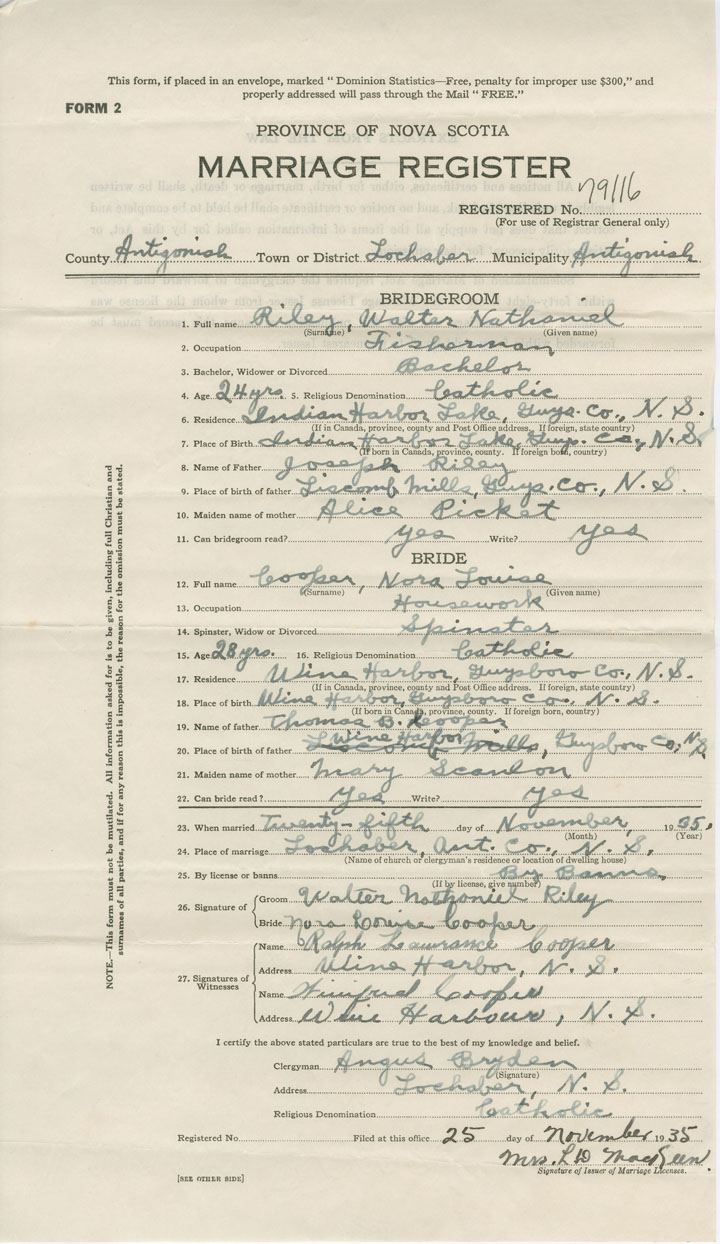 This form, if placed in an envelope, marked “ Dominion Statistics—Free, penalty for improper use $300,” and
properly addressed will pass through the Mail “ FREE.”
FORM 2
PROVINCE OF NOVA SCOTIA
MARRIAGE REGISTER
REGISTERED No. 79116
(For use of Registrar General only)
County Antigonish Town or District Lochaber Municipality Antigonish
BRIDEGROOM
1. Full name Riley, Walter Nathaniel
(Surname) (Given name)
2. Occupation Fisherman
3. Bachelor, Widower or Divorced Bachelor
4. Age 24 yrs. 5. Religious Denomination Catholic
6. Residence Indian Harbor Lake, Guys. Co., N. S.
(If in Canada, province, county and Post Office address. If foreign, state country)
7. Place of Birth Indian Harbor Lake, Guys. Co., N. S.
(If born in Canada, province, county. If foreign born, country)
8. Name of Father Joseph Riley
9. Place of birth of father Liscomb Mills, Guys. Co., N. S.
10. Maiden name of mother Alice Picket
11. Can bridegroom read? yes Write? yes
BRIDE
12. Full name Cooper, Nora Louise
(Surname) (Given name)
13. Occupation Housework
14. Spinster, Widow or Divorced Spinster
15. Age 28 yrs. 16. Religious Denomination Catholic
17. Residence Wine Harbor, Guysboro Co., N. S.
(If in Canada, province, county and Post Office address. If foreign, state country)
18. Place of birth Wine Harbor, Guysboro Co., N. S.
(If born in Canada, province, county. If foreign born, country)
19. Name of father Thomas B. Cooper
Wine Harbor
20. Place of birth of father Liscomb Mills, Guysboro Co., N. S.
21. Maiden name of mother Mary Scanlon
22. Can bride read? Yes Write? yes
23. When married Twenty-fifth day of November, 1935.
(Month) (Year)
24. Place of marriage Lochaber, Ant. Co., N. S.
(Name of church or clergyman's residence or location of dwelling house)
25. By license or banns By Banns
(If by license, give number)
26. Signature of Groom Walter Nathaniel Riley
Bride Nora Louise Cooper
27. Signatures of Witnesses
Name Ralph Lawrance Cooper
Address Wine Harbor, N. S.
Name Winifred Cooper
Address Wine Harbour, N. S.
I certify the above stated particulars are true to the best of my knowledge and belief.
Clergyman Angus Bryden
(Signature)
Address Lochaber, N. S.
Religious Denomination Catholic
Registered No. Filed at this office 25 day of November 1935
Mrs. L D MacKeen
Signature of Issuer of Marriage Licenses.
[SEE OTHER SIDE]
NOTE.—This form must not be mutilated. All information asked for is to be given, including full Christian and
surnames of all parties, and if for any reason this is impossible, the reason for the omission must be stated.